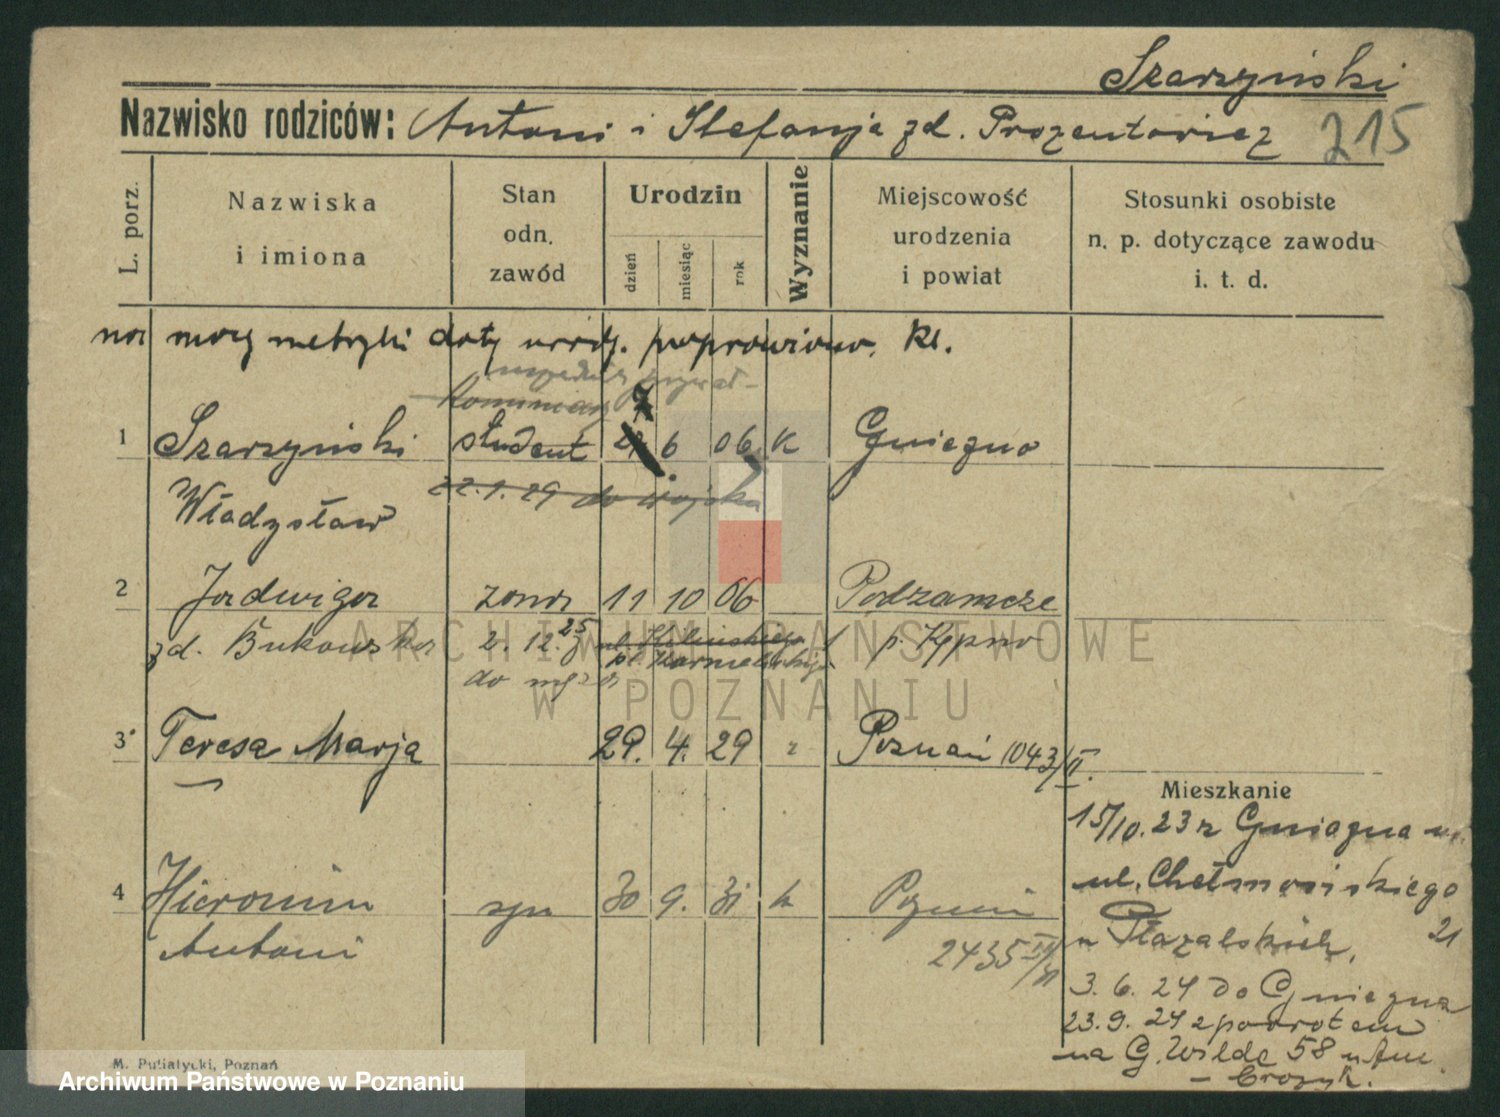 Szarzyński
Nazwisko rodziców: Antoni i Stefanja zd. Prozentowicz 215
L. porz.
Nazwiska
i imiona
Stan
odn.
zawód
Urodzin
dzień
miesiąc
rok
Wyznanie
Miejscowość
urodzenia
i powiat
Stosunki osobiste
n. p. dotyczące zawodu
i. t. d.
na mocy metryki daty urodz. poprawiono. Kl.
prywat
7
1 Szarzyński student 6 06 K Gniezno
22.1.29 do wojska
Władysław
2 Jadwiga żona 11 10 06 Podzamcze
zd. Bukowska 2. 12. 25 p. Kępno
do męża
3 Teresa Marja 29. 4. 29 Poznań 1043/II.
Mieszkanie
15/10.23 z Gniezna
ul. Chełmońskiego
21
4 Hieronim syn 30 9. 31 k Poznań
Antoni
2435
3. 6. 24 do Gniezna
23.9. 24 z powrotem
na G. Wilde 58
M. Putiatycki, Poznań
Archiwum Państwowe w Poznaniu
ARCHIWUM PAŃSTWOWE
W POZNANIU